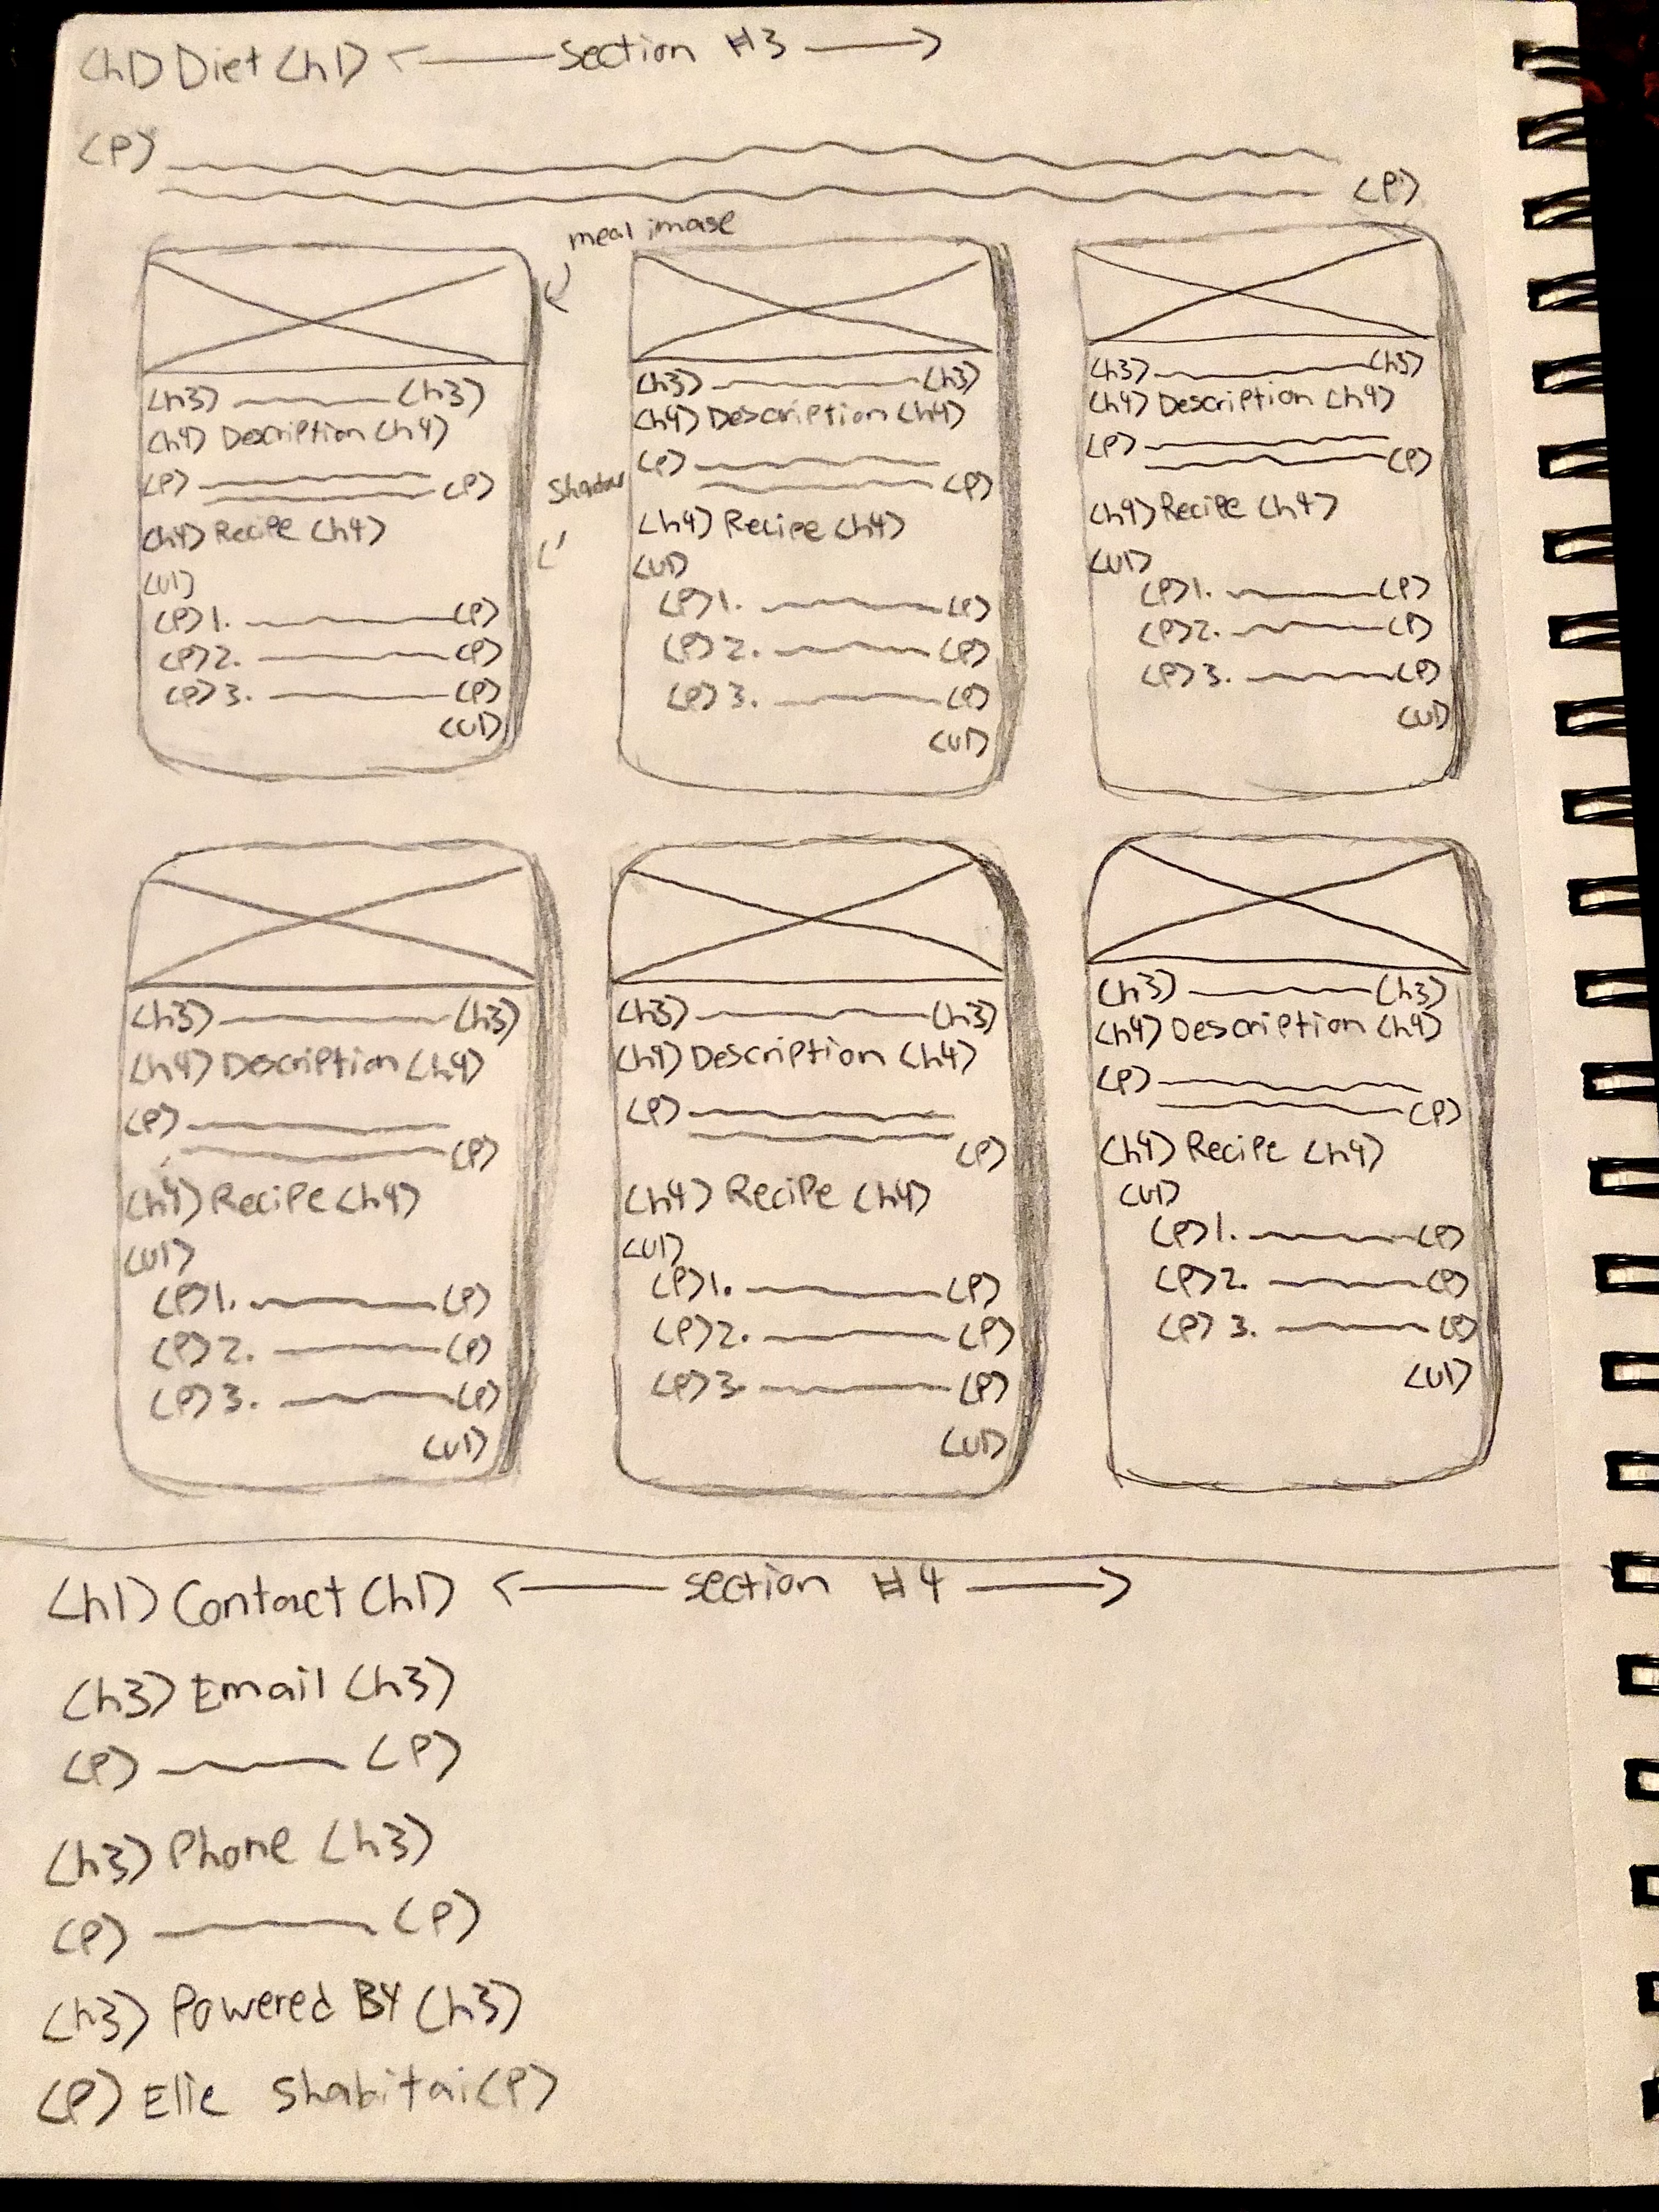 <h1> Diet <h1> <—— section #3 ——>
<P>
<P>
meal image
<h3> <h3>
<h4> Description <h4>
<P> <P>
<h4> Recipe <h4>
<ul>
<P> 1. <P>
<P> 2. <P>
<P> 3. <P>
<ul>
shadow
<h3> <h3>
<h4> Description <h4>
<P> <P>
<h4> Recipe <h4>
<ul>
<P> 1. <P>
<P> 2. <P>
<P> 3. <P>
<ul>
<h3> <h3>
<h4> Description <h4>
<P> <P>
<h4> Recipe <h4>
<ul>
<P> 1. <P>
<P> 2. <P>
<P> 3. <P>
<ul>
<h3> <h3>
<h4> Description <h4>
<P> <P>
<h4> Recipe <h4>
<ul>
<P> 1. <P>
<P> 2. <P>
<P> 3. <P>
<ul>
<h3> <h3>
<h4> Description <h4>
<P> <P>
<h4> Recipe <h4>
<ul>
<P> 1. <P>
<P> 2. <P>
<P> 3. <P>
<ul>
<h3> <h3>
<h4> Description <h4>
<P> <P>
<h4> Recipe <h4>
<ul>
<P> 1. <P>
<P> 2. <P>
<P> 3. <P>
<ul>
<h1> Contact <h1> <—— section #4 ——>
<h3> Email <h3>
<P> <P>
<h3> Phone <h3>
<P> <P>
<h3> Powered BY <h3>
<P> Elie Shabitai <P>